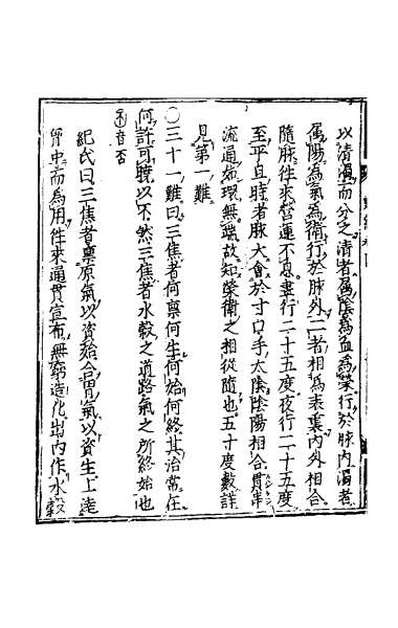 以清濁而分之清者屬陰為血為榮行於脉内濁者
属陽為氣為衛行於脉外二者相為表裏内外相合
隨脉徃來營運不息晝行二十五度夜行二十五度
至平旦時者脉大會於寸口手太陰陰陽相合貫串
流通如環無端故知榮衛之相從隨也五十度數詳
見第一難
〇三十一難曰三焦者何稟何生何始何終其治常在
何許可曉以不然三焦者水穀之道路氣之所終始也
音否
紀氏曰三焦者稟原氣以資始合胃氣以資生上達
胃中而為用徃來通貫宣布無窮造化出内作水穀